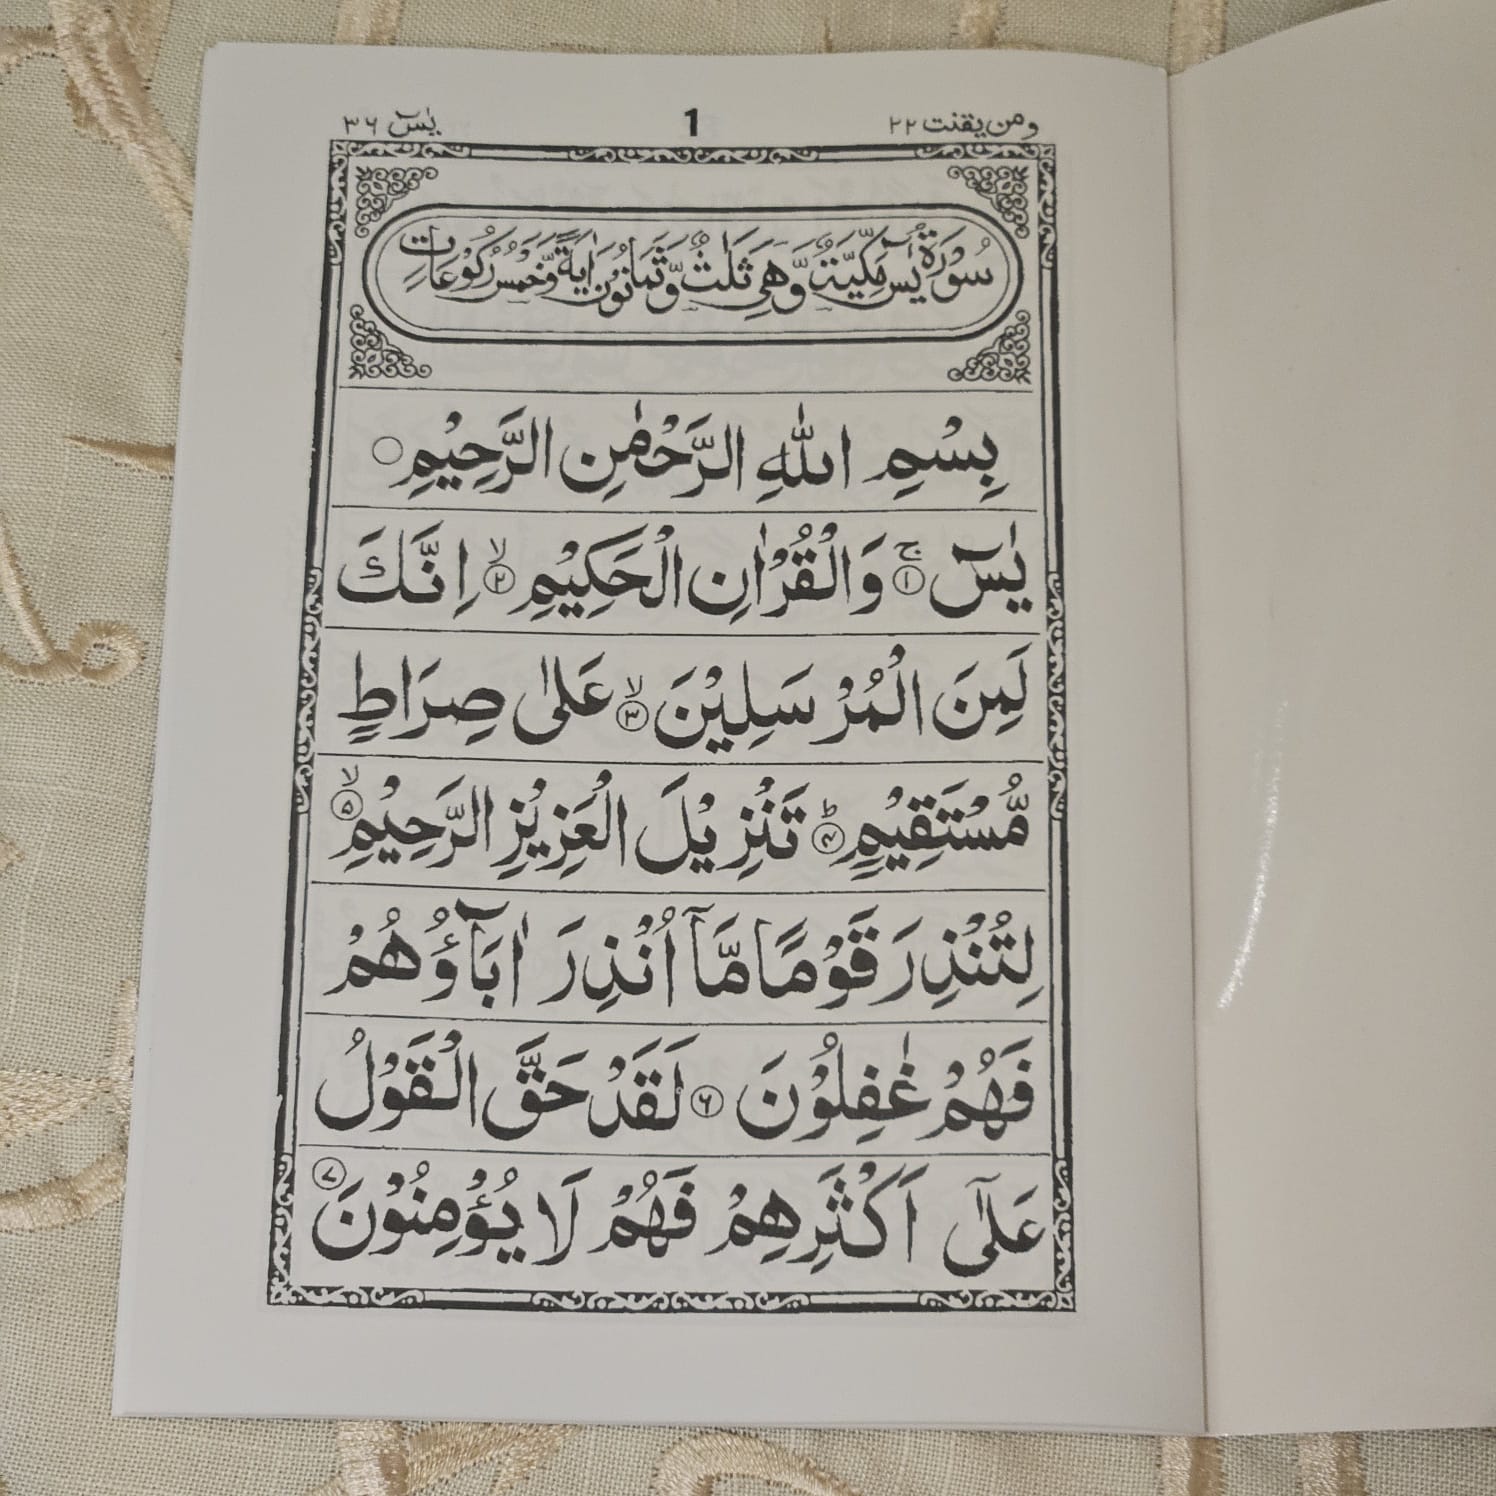 ومن يقنت ٢٢
1
يٰسٓ ٣٦
سُوْرَةُ يٰسٓ مَكِّيَّةٌ وَّهِيَ ثَلٰثٌ وَّثَمَانُوْنَ اٰيَةً وَّخَمْسُ رُكُوْعَاتٍ
بِسْمِ اللّٰهِ الرَّحْمٰنِ الرَّحِيْمِ
يٰسٓ ۚ﴿۱﴾ وَالْقُرْاٰنِ الْحَكِيْمِ ۙ﴿۲﴾ اِنَّكَ
لَمِنَ الْمُرْسَلِيْنَ ۙ﴿۳﴾ عَلٰى صِرَاطٍ
مُّسْتَقِيْمٍ ؕ﴿۴﴾ تَنْزِيْلَ الْعَزِيْزِ الرَّحِيْمِ ۙ﴿۵﴾
لِتُنْذِرَ قَوْمًا مَّاۤ اُنْذِرَ اٰبَآؤُهُمْ
فَهُمْ غٰفِلُوْنَ ﴿۶﴾ لَقَدْ حَقَّ الْقَوْلُ
عَلٰۤى اَكْثَرِهِمْ فَهُمْ لَا يُؤْمِنُوْنَ ﴿۷﴾